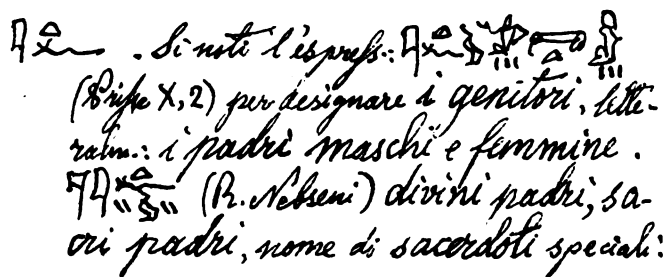 . Si noti l'espress.:
(Prisse X, 2) per designare i genitori, lette-
ralm.: i padri maschî e femmine.
(R. Nebseni) divini padri, sa-
cri padri, nome di sacerdoti speciali: